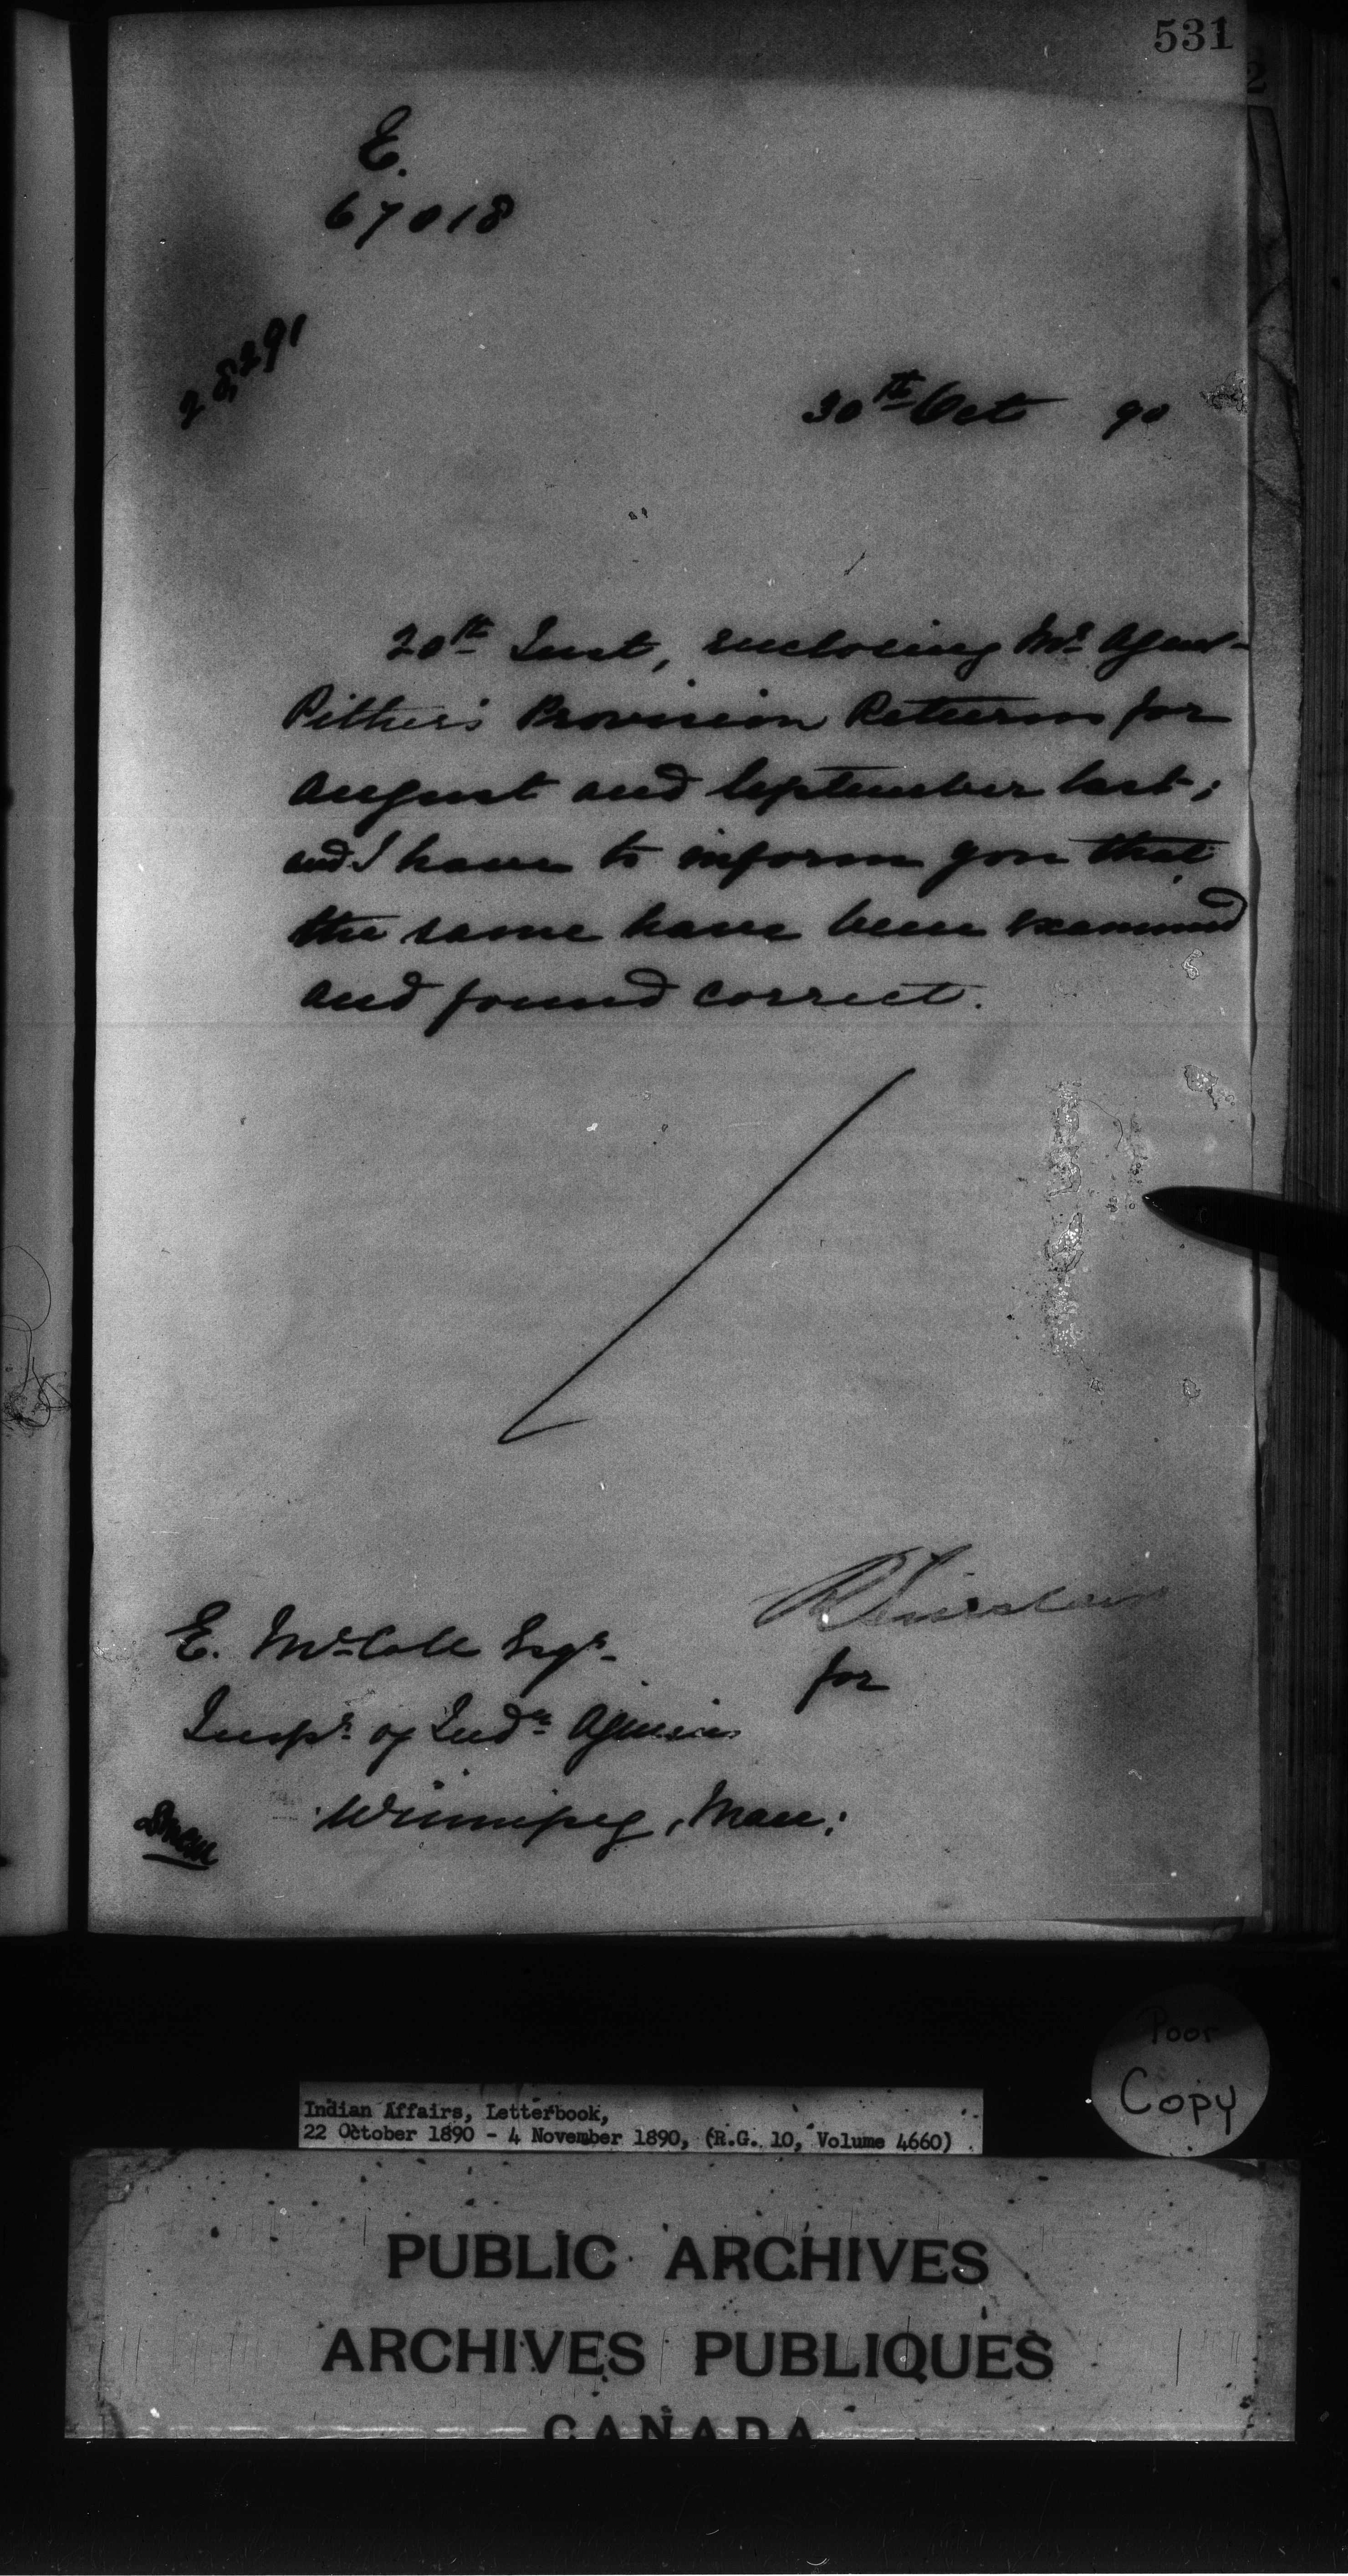 531
E.
67018
28,291
30th Oct 90
20th Inst, enclosing Mr Agent
Pither's Provision Returns for
August and September last;
and I have to inform you that
the same have been examined
and found correct.
R Sinclair
for
E. McColl Esqr.
Inspr. of Indn. Agencies
Winnipeg, Man:
Poor
Copy
Indian Affairs, Letterbook,
22 October 1890 - 4 November 1890, (R.G. 10, Volume 4660)
PUBLIC ARCHIVES
ARCHIVES PUBLIQUES
CANADA